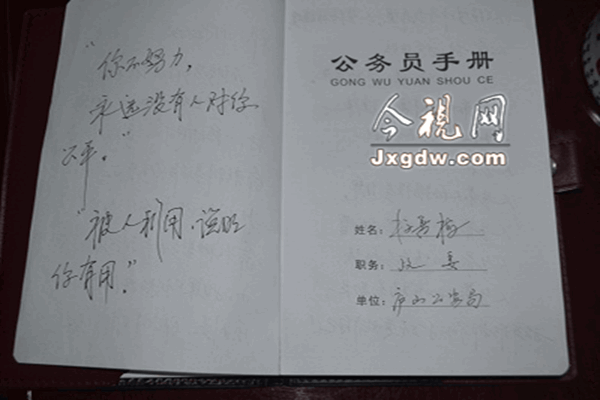 “你不努力，
永远没有人对你
公平。”
“被人利用，说明
你有用。”
公务员手册
GONG WU YUAN SHOU CE
今视网
Jxgdw.com
姓名：
职务：政委
单位：庐山公安局